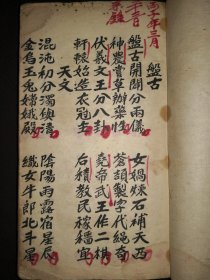 年三月
盤古
盤古開闢分兩儀 女媧煉石補天西
神農嘗草辦藥性 蒼頡製字代繩奇
伏羲文王分八卦 堯帝武王作二棋
軒轅始造衣冠 后稷教民稼穡宜
天文
混沌初分濁清 陰陽雨露宿星
金烏玉兔嫦娥殿 織女牛郎北斗